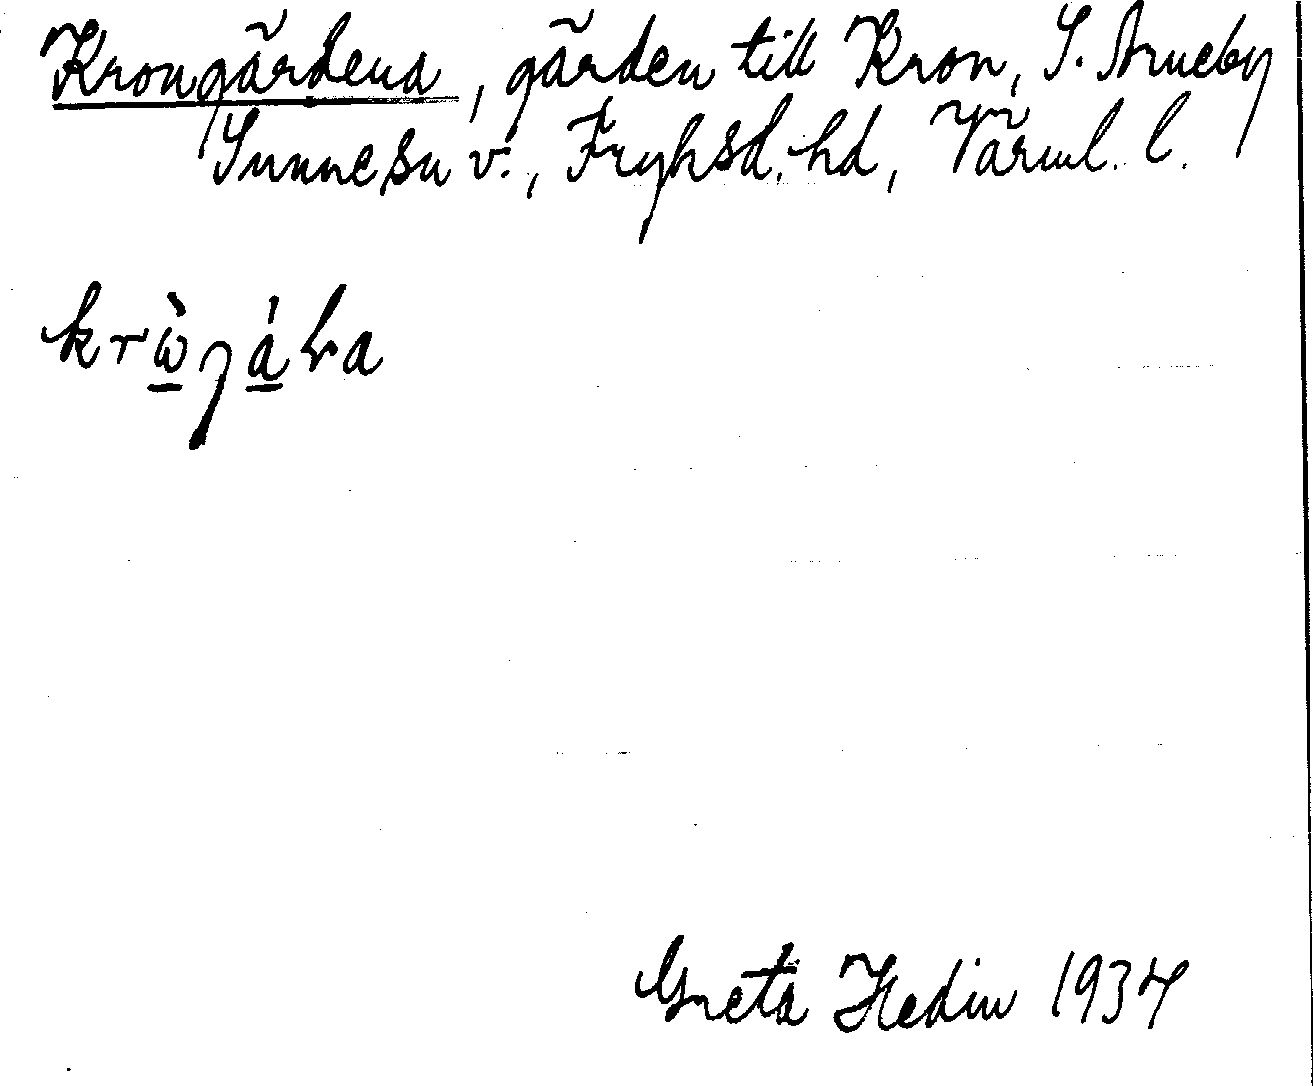 Krongärdena, gärden till Kron, S. Åmneby
Sunne sn v., Fryksd. hd, Värml. l.
krὼ̱ŋά̱ɽa
Greta Hedin 1934